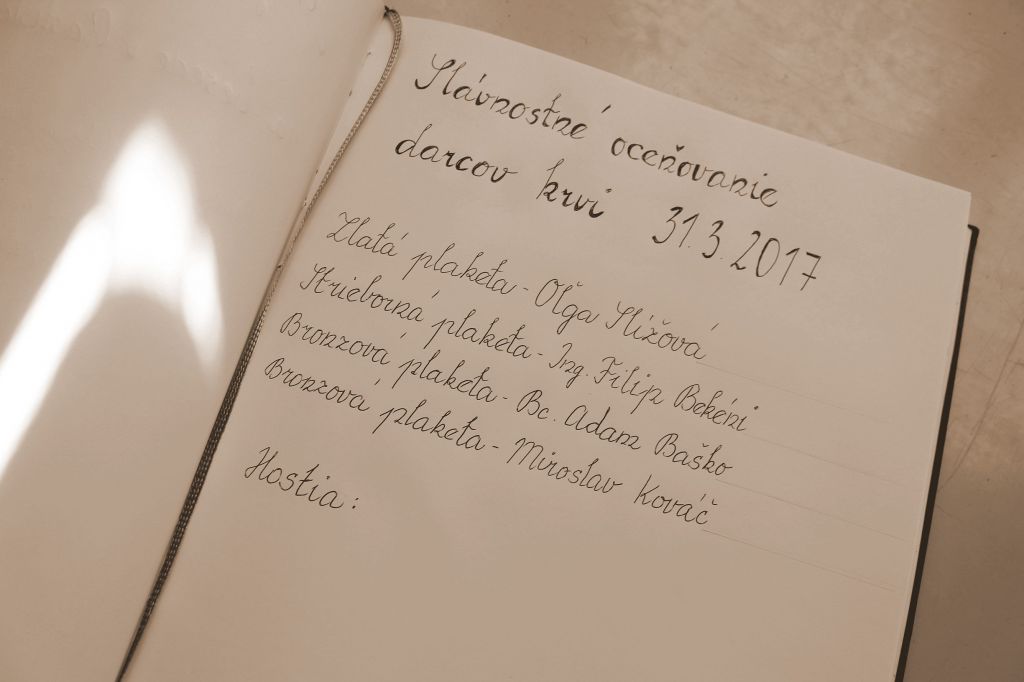 Slávnostné oceňovanie
darcov krvi 31.3.2017
Zlatá plaketa - Oľga Slížová
Strieborná plaketa - Ing. Filip Bekéni
Bronzová plaketa - Bc. Adam Baško
Bronzová plaketa - Miroslav Kováč
Hostia: